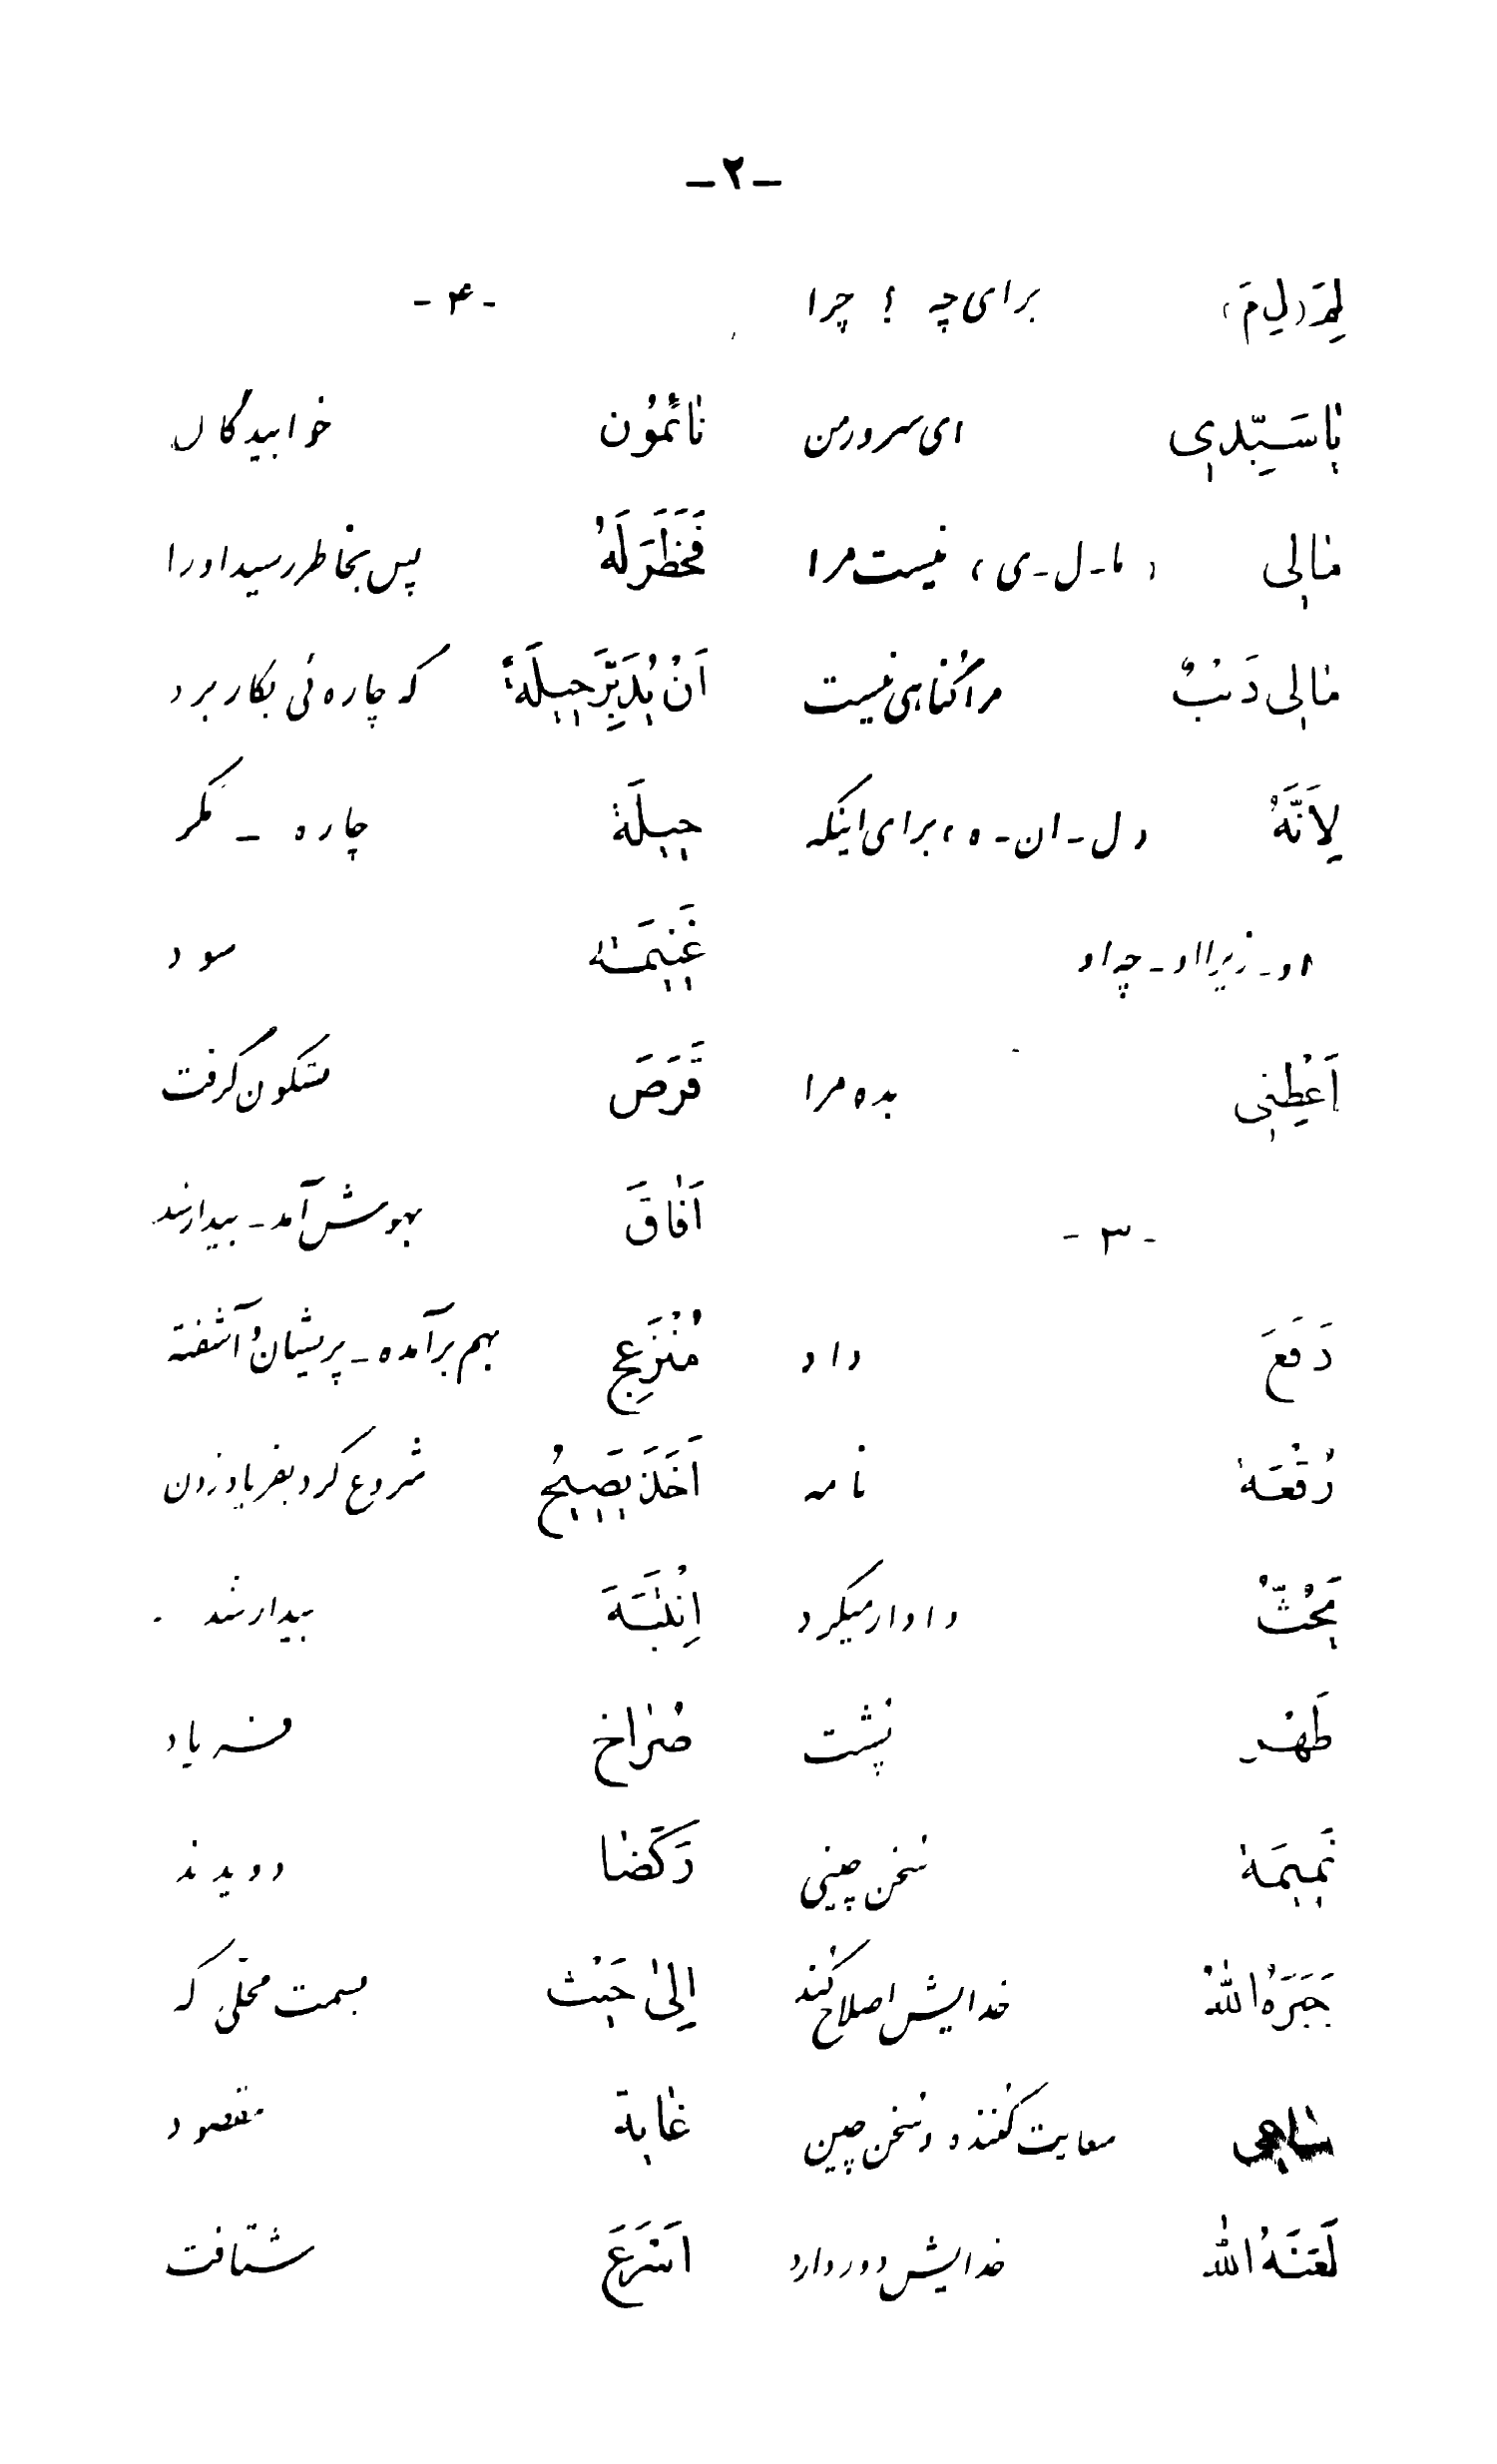 -۲-
لِمَ (لِ مَ) برای چه ؟ چرا
یاسَیِّدی ای سرور من
مالی (ما-ل-ی) نیست مرا
مالی ذَنْبٌ مرا گناهی نیست
لِاَنَّهُ (ل-ان-ه) برای اینکه
او-زیرا او-چه او
اَعْطِنی بده مرا
-۳-
دَفَعَ داد
رُقْعَة نامه
یَحُثُّ وادار میکرد
ظَهْر پشت
نَمیمَة سخن چینی
جَبَرَهُ اللهُ خدایش اصلاح کند
ساعی سعایت کننده و سخن چین
لَعَنَهُ الله خدایش دور دارد
-۴-
نائمُون خوابیدگان
فَخَطَرَلَهُ پس بخاطر رسید او را
اَنْ یُدَبِّرَ حیلَةً که چاره ئی بکار برد
حیلَة چاره - مکر
غَنیمَة سود
قَرَصَ نشکون گرفت
اَفاقَ بهوش آمد - بیدار شد
مُنْزَعِج بهم برآمده - پریشان و آشفته
اَخَذَ یَصیحُ شروع کرد بفریاد زدن
اِنْتَبَهَ بیدار شد .
صُراخ فریاد
رَکَضا دویدند
اِلیٰ حَیْث بسمت محلّی که
غایة مقصود
اَسْرَعَ شتافت